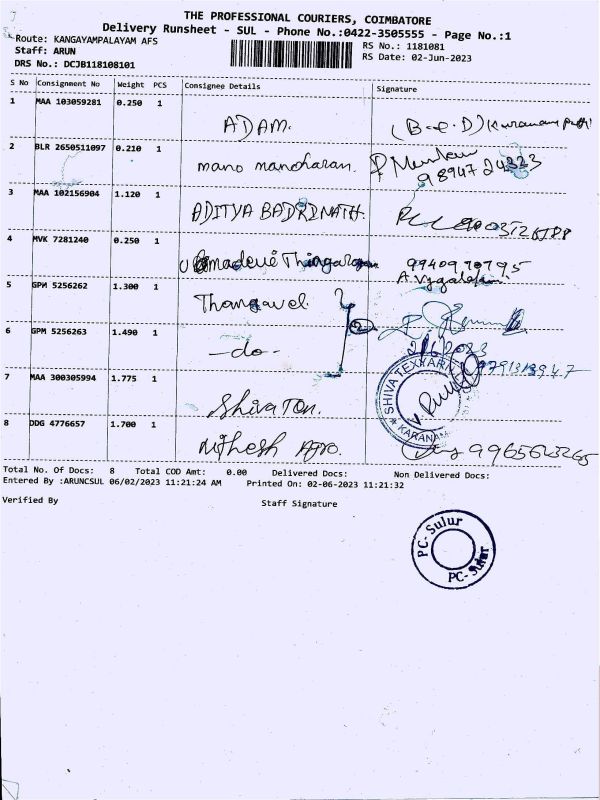 THE PROFESSIONAL COURIERS, COIMBATORE
Delivery Runsheet - SUL - Phone No.:0422-3505555 - Page No.:1
Route: KANGAYAMPALAYAM AFS
RS No.: 1181081
Staff: ARUN
RS Date: 02-Jun-2023
DRS No.: DCJB118108101
S No Consignment No Weight PCS Consignee Details Signature
1 MAA 103059281 0.250 1
ADAM.
2 BLR 2650511097 0.210 1
mano manoharan.
98947 24323
3 MAA 102156904 1.120 1
ADITYA BADRINATH.
4 MVK 7281240 0.250 1
5 GPM 5256262 1.300 1
Thangavel.
6 GPM 5256263 1.490 1
-do-
7 MAA 300305994 1.775 1
Shiva Tex.
SHIVA TEXYARN
8 DDG 4776657 1.700 1
Nithesh Agro.
Total No. Of Docs: 8 Total COD Amt: 0.00 Delivered Docs: Non Delivered Docs:
Entered By :ARUNCSUL 06/02/2023 11:21:24 AM Printed On: 02-06-2023 11:21:32
Verified By Staff Signature
PC-Sulur
PC-Sulur